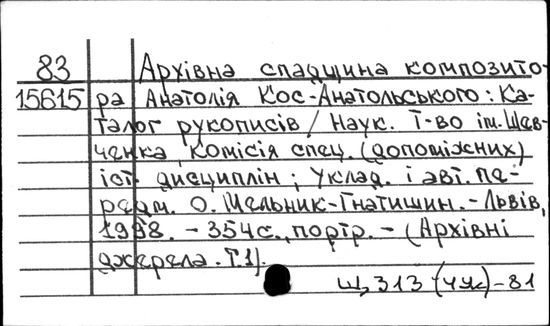 83 Архівна спадщина композито-
15615 ра Анатолія Кос-Анатольського: Ка-
талог рукописів / Наук. т-во ім. Шев-
ченка, Комісія спец. (допоміжних)
іст. дисциплін; Уклад. і авт. пе-
редм. О. Мельник-Гнатишин. - Львів,
1998. - 354с., портр. - (Архівні
джерела. Т.1).
Щ313(4Ук)-81